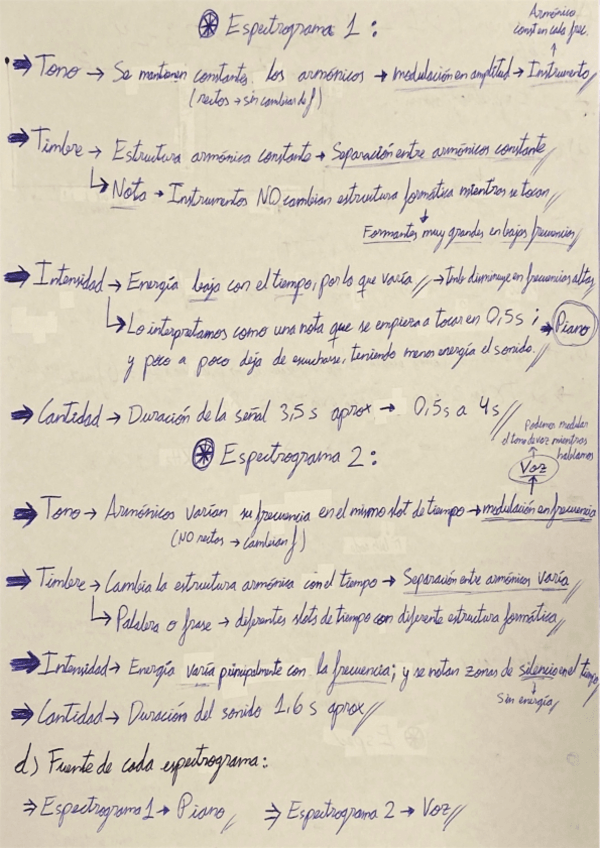 ⊛ Espectrograma 1:
Armónico
const en cada frec.
↑
→ Tono → Se mantienen constantes los armónicos → modulación en amplitud → Instrumento
(rectos → sin cambiar de f)
→ Timbre → Estructura armónica constante → Separación entre armónicos constante
↳ Nota → Instrumentos NO cambian estructura formática mientras se tocan
↓
Formantes muy grandes en bajas frecuencias
→ Intensidad → Energía baja con el tiempo, por lo que varía // → Inte disminuye en frecuencias altas
↳ Lo interpretamos como una nota que se empieza a tocar en 0,5s; → Piano
y poco a poco deja de escucharse, teniendo menos energía el sonido.
→ Cantidad → Duración de la señal 3,5 s aprox → 0,5s a 4s
⊛ Espectrograma 2:
Podemos modular
el tono de voz mientras
hablamos
↑
Voz
↑
→ Tono → Armónicos varían su frecuencia en el mismo slot de tiempo → modulación en frecuencia
(NO rectos → cambian f)
→ Timbre → Cambia la estructura armónica con el tiempo → Separación entre armónicos varía
↳ Palabra o frase → diferentes slots de tiempo con diferente estructura formática
→ Intensidad → Energía varía principalmente con la frecuencia; y se notan zonas de silencio en el tiempo
↓
Sin energía
→ Cantidad → Duración del sonido 1,6 s aprox
d) Fuente de cada espectrograma:
⇒ Espectrograma 1 → Piano ⇒ Espectrograma 2 → Voz